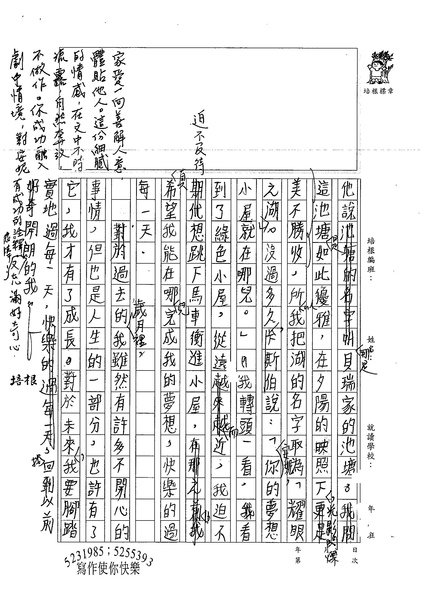 培根標章
培根編班：
姓名：
就讀學校：
年
班
年
月
日
第
次
他說池塘的名字叫貝瑞家的池塘。我問
這池塘如此優雅，在夕陽的映照下更是
美不勝收，所以我把湖的名字取為「耀眼
元湖」。沒過多久卡斯伯說：「你的夢想
小屋就在哪兒。」我轉頭一看，我看
到了綠色小屋，從遠越來越近，我迫不
期他想跳下馬車衝進小屋，
希望我能在哪完成我的夢想，快樂的過
每一天。
對於過去的我雖然有許多不開心的
事情，但也是人生的一部分，也許有了
它，我才有了成長。對於未來我要腳踏
實地過每一天，快樂的過每一天，回到以前
好奇開朗的我。
迫不及待
歲月裡，
家愛，一向善解人意
體貼他人。這份細膩
的情感，在文中不時
流露，自然奔放
不做作。你成功融入
劇中情境，對安妮
有成功的詮釋
滿好奇心
培根
5231985；5255393
寫作使你快樂